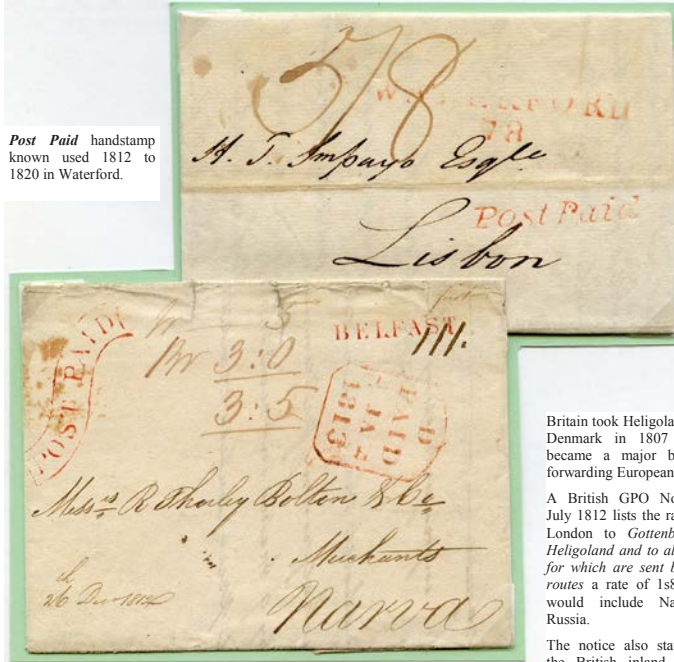 Post Paid handstamp
known used 1812 to
1820 in Waterford.
5/8
WATERFORD
78
H. T. Impayo Esqre
Post Paid
Lisbon
POST PAID
BELFAST
111.
3:0
3:5
D
PAID
JA 4
1813
Messrs R Thorley Bolton & Co
Merchants
Narva
26 Dec 1812
Britain took Heligola
Denmark in 1807
became a major b
forwarding European
A British GPO No
July 1812 lists the ra
London to Gottenb
Heligoland and to al
for which are sent b
routes a rate of 1s8
would include Na
Russia.
The notice also sta
the British inland